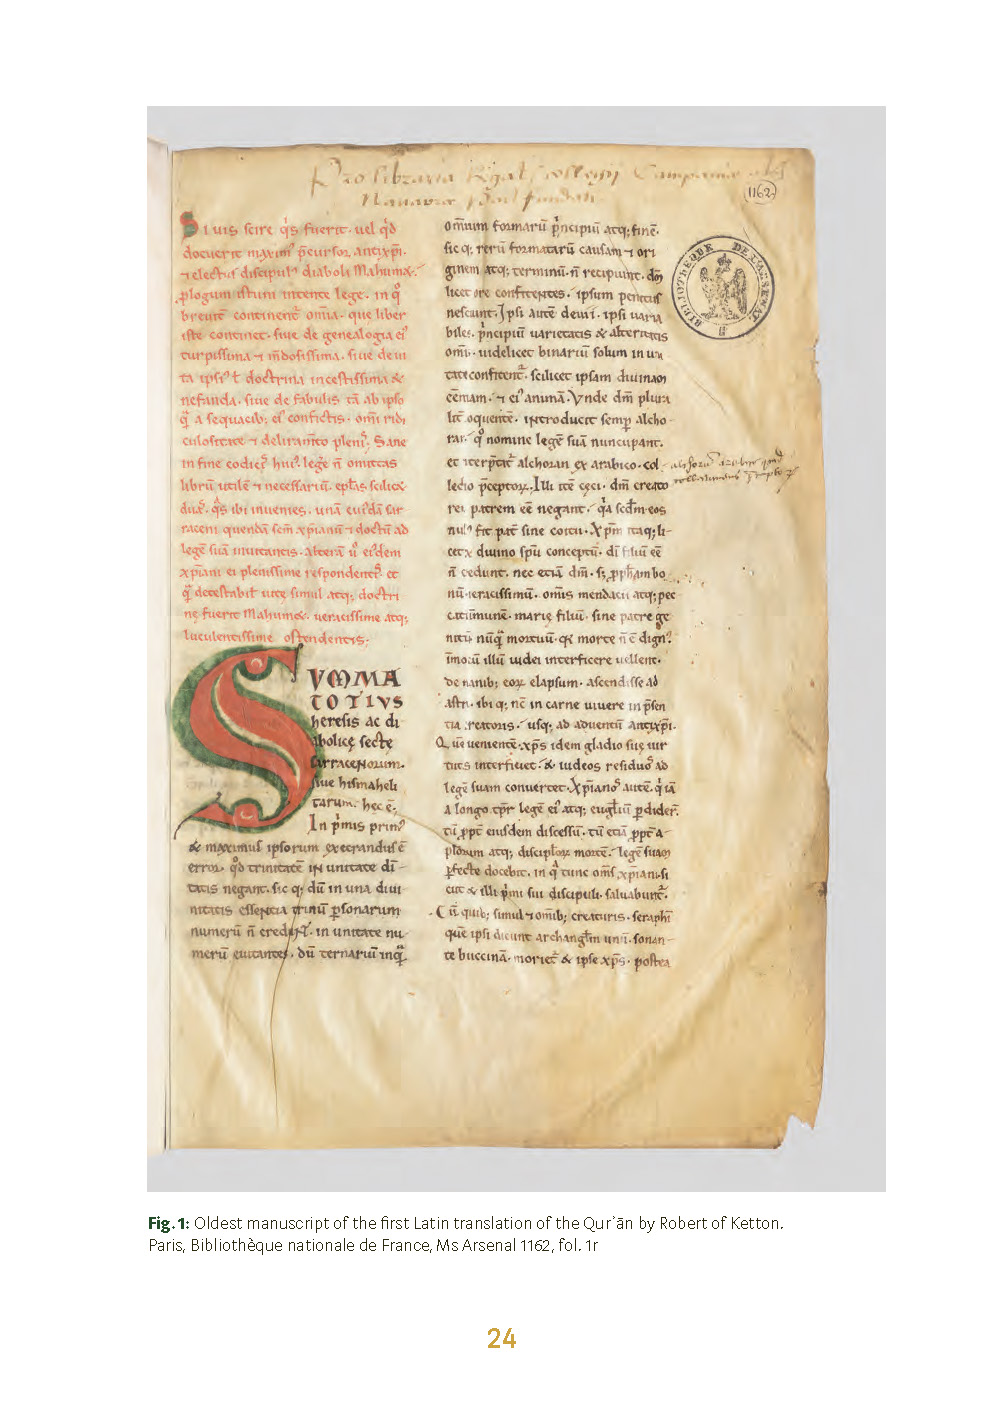 Pro libraria Regal collegij Campanie als
Nauarre fundati
1162
BIBLIOTHEQUE DE L'ARSENAL
SI uis scire q̇s fuerit. uel qͥd
docuerit maxim᷒ p̄cursor antixp̄i.
⁊ electus discipul᷒ diaboli Mahumet.
plogum istum intente lege. in qͦ
breuit̄ continent̄ omīa. que liber
iste continet. siue de genealogia ei᷒
turpissima ⁊
doctrina incestissima &
nefanda. siue de fabulis tā ab ipso
qͣ a sequacib; ei᷒ confictis. om̄i ridi
culositate ⁊ deliram̄to pleni᷒. Sane
in fine codic᷒ hui᷒ legē n̄ omittas
librū utilē ⁊ necessariū. ep̄las scilic&
duas. qͣs ibi inuenies. unā cui᷒dā sar
raceni quendā xp̄ianū ⁊ doctū ad
legē suā inuitantis. alterā ū ei᷒dem
xp̄iani ei plenissime respondentis. et
uite simul atq; doctri
ne fuerit Mahumet. ueracissime atq;
luculentissime ostendentis.
SUMMA
TOTIVS
heresis ac di
abolicę sectę
sarracenorum.
siue hismaheli
tarum. hec ē.
In p̍mis prim᷒
& maximus ipsorum execrandus ē
error. qͦd trinitatē in unitate dī
tatis negant. sic q; dū in una diui
nitatis essentia trinū p̱sonarum
numerū n̄ credunt. in unitate nu
merū euitantes. dū ternariū inqͣ
omnium formarū p̍ncipiū atq; finē.
sic q; rerū formatarū causam ⁊ ori
ginem atq; terminū. n̄ recipiunt. dm̄
licet ore confitentes. ipsum penitus
nesciunt. Ipsi autē deuii. ipsi uaria
biles. p̍ncipiū uarietatis & alteritatis
om̄i. uidelicet binariū solum in uni
tate confitent̄. scilicet ipsam diuinam
ēēntiam. ⁊ ei᷒ animā. Vnde dm̄ plura
lit̄ loquentē. introducit semp̱ alcho
ran. qͦ nomine legē suā nuncupant.
et int̄p̱tat̄ alchoran ex arabico. col
lectio p̄ceptorꝝ. Illi itē cęci. dm̄ creato
rem patrem eē negant. qͣa scdm̄ eos
null᷒ fit pat̄ sine coitu. Xp̄m itaq; li
cet ex diuino sp̄u conceptū. dī filiū eē
n̄ credunt. nec etiā dm̄. s; p̱ph̄am bo
nū. ueracissimū. omīs mendacii atq; pec
cati īmunē. marię filiū. sine patre ge
nitū. nūqͣ mortuū. qͣ morte n̄ ē dign᷒.
īmo cū illū iudei interficere uellent.
de manib; eoꝝ elapsum. ascendisse ad
astra. ibi q; nc̄ in carne uiuere in p̄sen
tia creatoris. usq; ad aduentū antixp̄i.
Quē uenientē. xp̄s idem gladio suę uir
tutis interficiet. & iudeos residuos ad
legē suam conuertet. Xp̄ianos autē. q̍ iā
a longo tp̄r legē ei᷒ atq; euḡliū p̱dider̄.
tū p̱pt̄ eiusdem discessū. tū etiā p̱pt̄ a
plorum atq; discipl̄oꝝ mortē. legē suam
p̱fecte docebit. in qͣ tunc om̄s xp̄iani. si
cut & illi p̍mi sui discipuli. saluabunt̄.
Cū quib; simul ⁊ om̄ib; creaturis. seraphī
quē ipsi dicunt archangl̄m unū. sonan
te buccinā. moriet̄ & ipse xp̄s. postea
Fig.1: Oldest manuscript of the first Latin translation of the Qurʾān by Robert of Ketton.
Paris, Bibliothèque nationale de France, Ms Arsenal 1162, fol. 1r
24